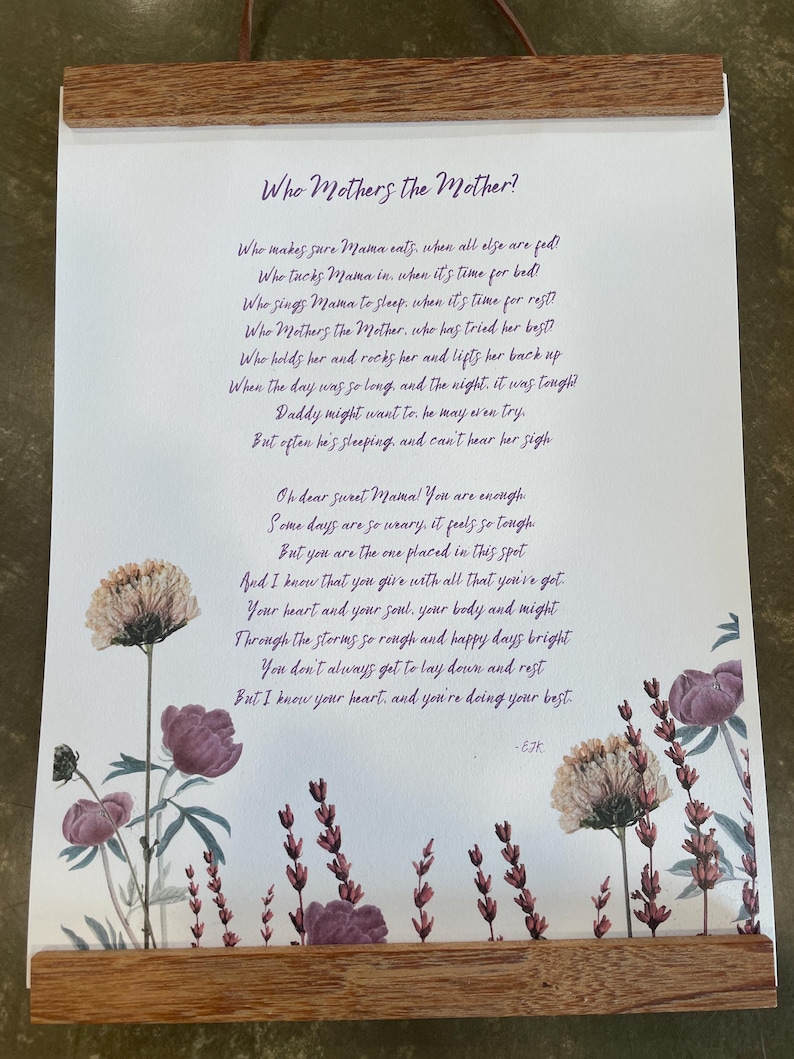 Who Mothers the Mother?
Who makes sure Mama eats, when all else are fed?
Who tucks Mama in, when it's time for bed?
Who sings Mama to sleep, when it's time for rest?
Who Mothers the Mother, who has tried her best?
Who holds her and rocks her and lifts her back up
When the day was so long, and the night, it was tough?
Daddy might want to, he may even try,
But often he's sleeping, and can't hear her sigh
Oh dear sweet Mama! You are enough.
Some days are so weary, it feels so tough.
But you are the one placed in this spot
And I know that you give with all that you've got.
Your heart and your soul, your body and might
Through the storms so rough and happy days bright
You don't always get to lay down and rest
But I know your heart, and you're doing your best.
- EJK